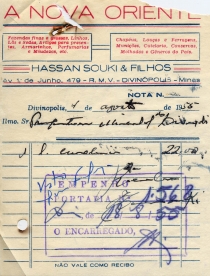 A NOVA ORIENTE
Fazendas finas e grossas, Linhos, Lãs e sedas, Artigos para presentes, Armarinhos, Perfumarias e Miudezas, etc.
Chapéus, Louças e Ferragens, Munições, Cutelaria, Conservas, Molhados e Gêneros do País.
HASSAN SOUKI & FILHOS
Av. 1.º de Junho, 479 - R. M. V. - DIVINÓPOLIS - Minas
NOTA N.
Divinópolis, 4 de agosto de 1955
Ilmo. Sr. Prefeitura Municipal de Divinópolis
22,00
EMPENHO
PORTARIA 1.568
18/8/55
O ENCARREGADO,
NÃO VALE COMO RECIBO